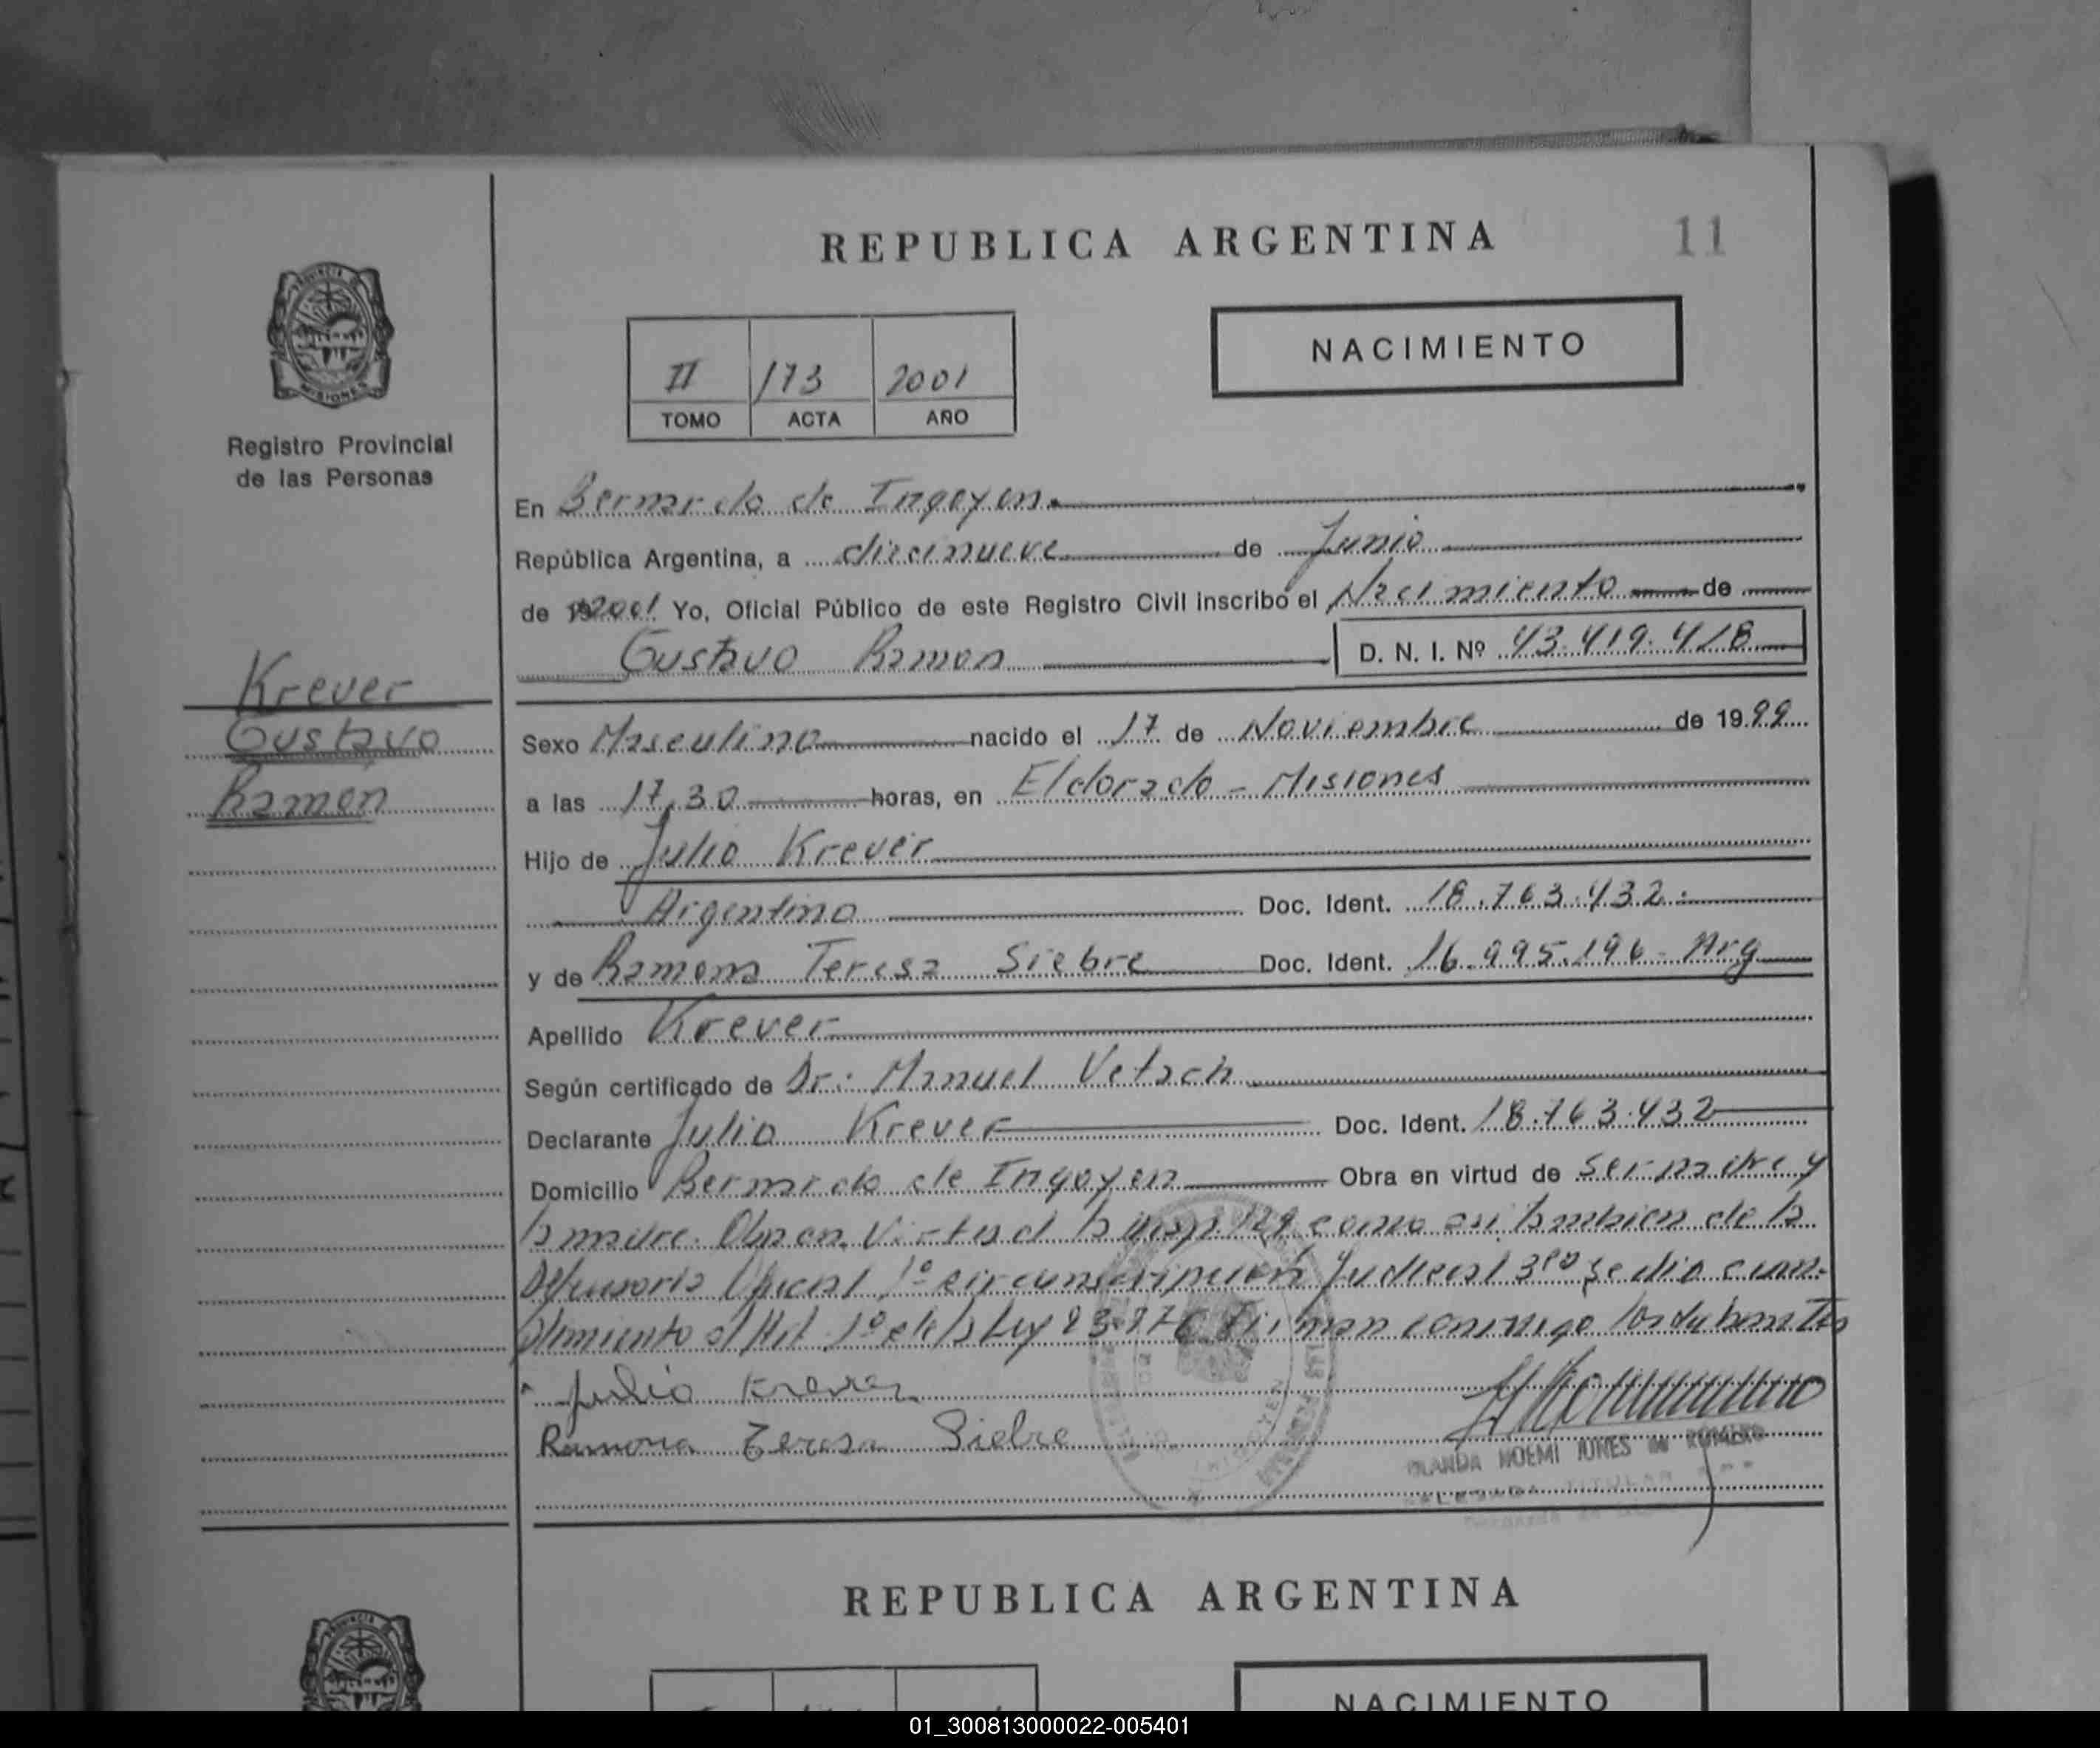 REPUBLICA ARGENTINA
11
PROVINCIA
MISIONES
Registro Provincial
de las Personas
NACIMIENTO
II 173 2001
TOMO ACTA AÑO
En Bernardo de Irigoyen.
República Argentina, a diecinueve de Junio
de 192001 Yo, Oficial Público de este Registro Civil inscribo el Nacimiento de
Gustavo Ramon D. N. I. Nº 43.419.418
Krever
Gustavo
Ramón
Sexo Masculino nacido el 17 de Noviembre de 1999
a las 17,30 horas, en Eldorado - Misiones
Hijo de Julio Krever
Argentino Doc. Ident. 18.763.432.
y de Ramona Teresa Siebre Doc. Ident. 16.995.196 - Arg
Apellido Krever
Según certificado de Dr: Manuel Vetach
Declarante Julio Krever Doc. Ident. 18.763.432
Domicilio Bernardo de Irigoyen Obra en virtud de ser padre y
la madre. Obra en virtud la como asi tambien de la
Defensoria Oficial 1º circunscripción Judicial 3ra se dio cum-
plimiento al Art. 1º de la Ley 23.776 Firman conmigo
Julio Krever
Ramona Teresa Siebre
NOEMI JUNES DE ROMERO
TITULAR
REPUBLICA ARGENTINA
NACIMIENTO
01_300813000022-005401